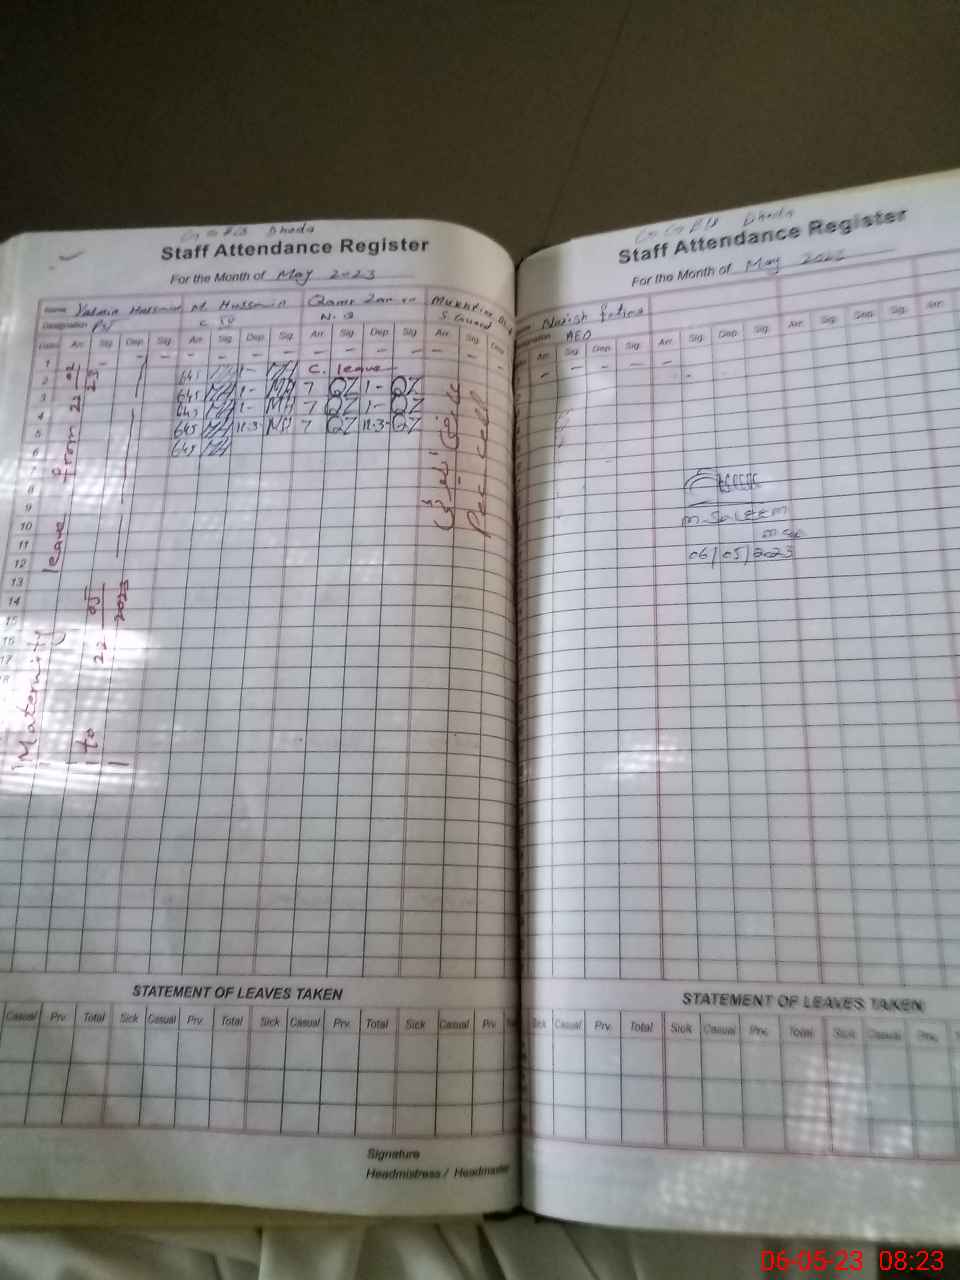 Staff Attendance Register
For the Month of May 2023
Name Hussain M. Hussain Qamar
Designation
Dates Arr. Sig. Dep. Sig. Arr. Sig. Dep. Sig. Arr. Sig. Dep. Sig. Arr. Sig. Dep.
1
2 645 1- C. leave
3 645 1- MH 7 QZ 1- QZ
4 645 1- MH 7 QZ 1- QZ
5 645 11.3- MH 7 QZ 11.3- QZ
6 645
7
8
9
10
11
12
13
14
15
16
17
18
Maternity leave from
to 22 05 2023
STATEMENT OF LEAVES TAKEN
Casual Prv. Total Sick Casual Prv. Total Sick Casual Prv. Total Sick Casual Prv.
Signature
Headmistress / Headmaster
Staff Attendance Register
For the Month of May 2023
AEO
Arr. Sig. Dep. Sig. Arr. Sig. Dep. Sig. Arr. Sig. Dep. Sig. Arr.
M. SALEEM
06/05/2023
STATEMENT OF LEAVES TAKEN
Sick Casual Prv. Total Sick Casual Prv. Total Sick Casual Prv.
06-05-23 08:23